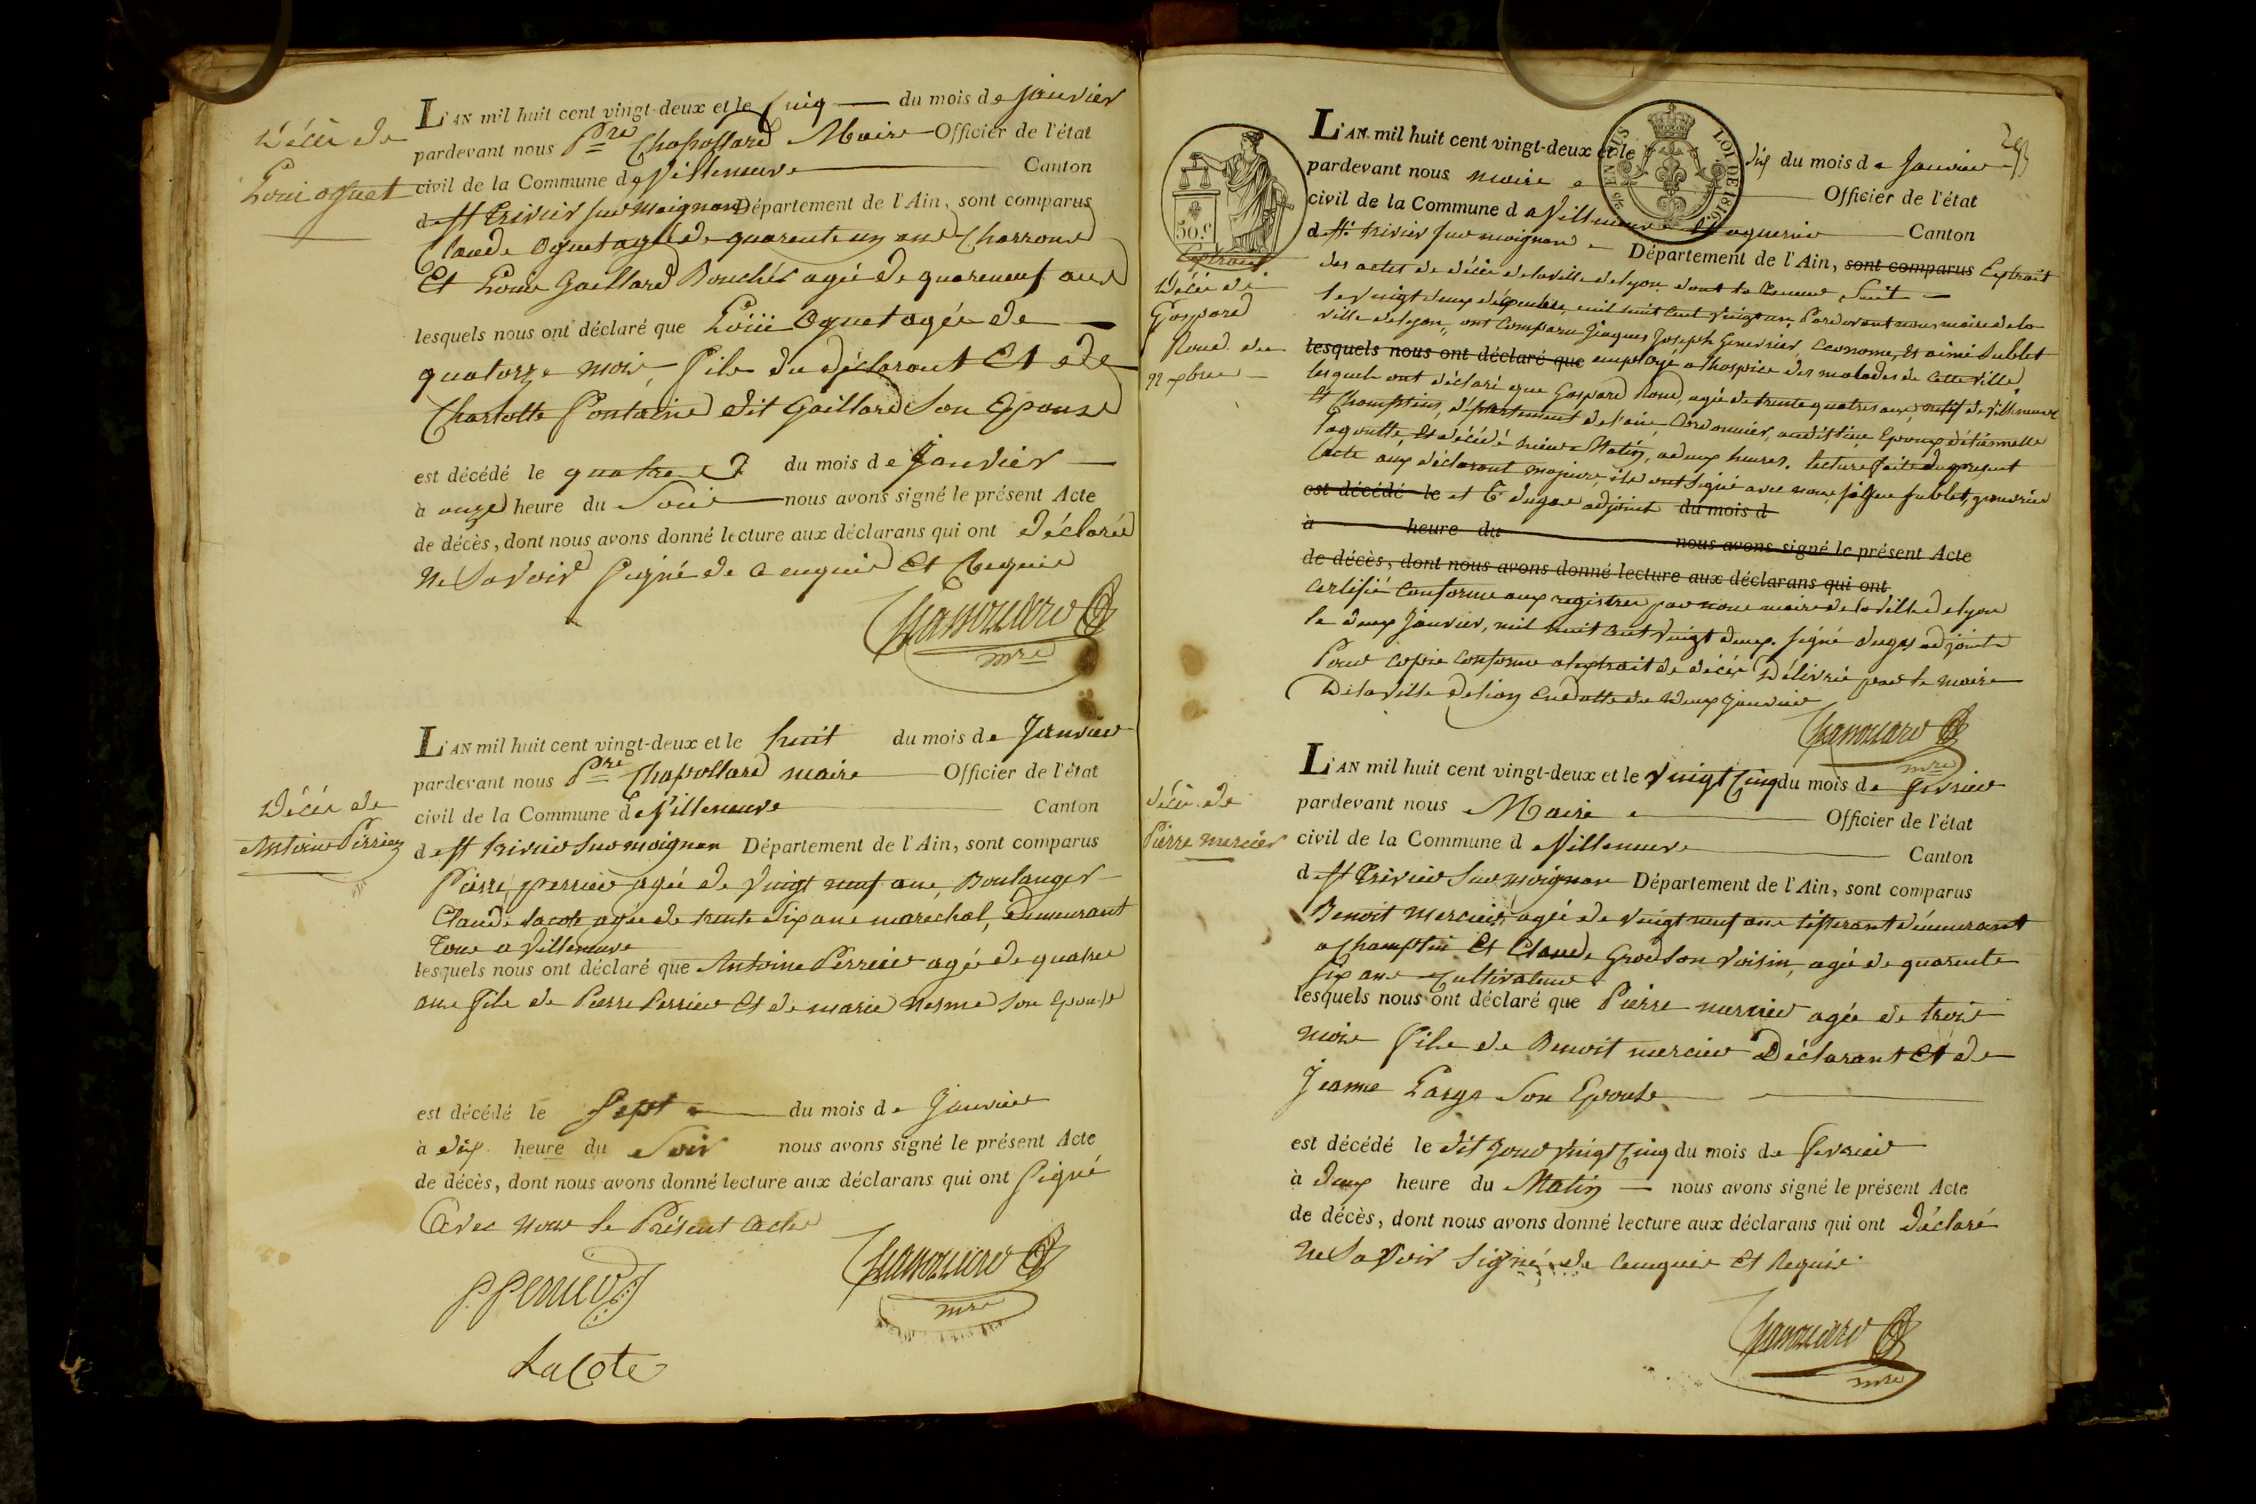 Décès de
Louis oguet
L'AN mil huit cent vingt-deux et le Cinq du mois de Janvier
pardevant nous Pre Chapollard Maire Officier de l'état
civil de la Commune de Villeneuve Canton
de St trivier sur moignan Département de l'Ain, sont comparus
Claude Oguet agée de quarente un ans Charron
Et Louis Gaillard Bouchér agée de ans
lesquels nous ont déclaré que Louis Oguet agée de
quatorze mois, fils du déclarant Et de
Charlotte Fontaine dit Gaillard Son Epouse
est décédé le quatre du mois de Janvier
à onze heure du Soir nous avons signé le présent Acte
de décès, dont nous avons donné lecture aux déclarans qui ont déclaré
Ne Savoir Signé de Enquis Et Requis
Chapollard
mre
Décès de
Antoine Perrier
L'AN mil huit cent vingt-deux et le huit du mois de Janvier
pardevant nous Pre Chapollard maire Officier de l'état
civil de la Commune de Villeneuve Canton
de St trivier Sur moignan Département de l'Ain, sont comparus
Pierre perrier agée de Vingt neuf ans Boulanger
Claude Lacote agée de trente Six ans maréchal, Demeurant
Tous a Villeneuve
lesquels nous ont déclaré que Antoine Perrier agée de quatre
ans fils de Pierre Perrier Et de marie Nesme Son Epouse
est décédé le Sept du mois de Janvier
à dix heure du Soir nous avons signé le présent Acte
de décès, dont nous avons donné lecture aux déclarans qui ont Signé
Avec Nous le Présent acte
P. Perrier
Chapollard
mre
LaCote
50 c
LOI DE 1816
L'AN mil huit cent vingt-deux et le dix du mois de Janvier
pardevant nous maire Officier de l'état
civil de la Commune de Villeneuve Canton
de St. trivier sur moignan Département de l'Ain, sont comparus Extrait
Extrait
Décès de
Gaspard
Roud du
22 xbre
des actes de décès de la ville de lyon dont la Teneur Suit
le vingt deux décembre, mil huit Cent Vingt un, Pardevant nous maire de la
ville de lyon, ont Comparu Jacques Joseph Genevrier, Econome, Et aimé Sublet
lesquels nous ont déclaré que employé a lhospice des malades de Cette ville
lesquels ont déclaré que Gaspard Roud, agée de trente quatre ans, natif de Villeneuve
Et Champtin, département de l'ain, Cordonnier, Epoux détiennette
Lagoutte, Est décédé hier Matin, a deux heures. lecture faite du présent
acte aux déclarant majeurs, ils ont Signé avec nous, Sublet, genevrier
est décédé le et dugas adjoint du mois d
à heure du nous avons signé le présent Acte
de décès, dont nous avons donné lecture aux déclarans qui ont
certifié Conforme aux registres par nous maire de la ville de lyon
le deux Janvier, mil huit Cent Vingt deux, Signé dugas adjoint
Pour Copie Conforme a lextrait de décès Délivré par le maire
De la ville de lion En datte du deux Janvier
Chapollard
mre
Décès de
Pierre mercier
L'AN mil huit cent vingt-deux et le Vingt Cinq du mois de fevrier
pardevant nous Maire Officier de l'état
civil de la Commune de Villeneuve Canton
de St Trivier Sur moignan Département de l'Ain, sont comparus
Benoit Mercier agée de Vingt neuf ans tisserant démeurant
a Champtin Et Claude Son Voisin, agée de quarente
Six ans Cultivateur
lesquels nous ont déclaré que Pierre mercier agée de trois
mois fils de Benoit mercier Déclarant Et de
Jeanne Large Son Epouse
est décédé le dit Jour Vingt Cinq du mois de fevrier
à deux heure du Matin nous avons signé le présent Acte
de décès, dont nous avons donné lecture aux déclarans qui ont déclaré
Ne Savoir Signé, de Enquis Et Requis
Chapollard
mre